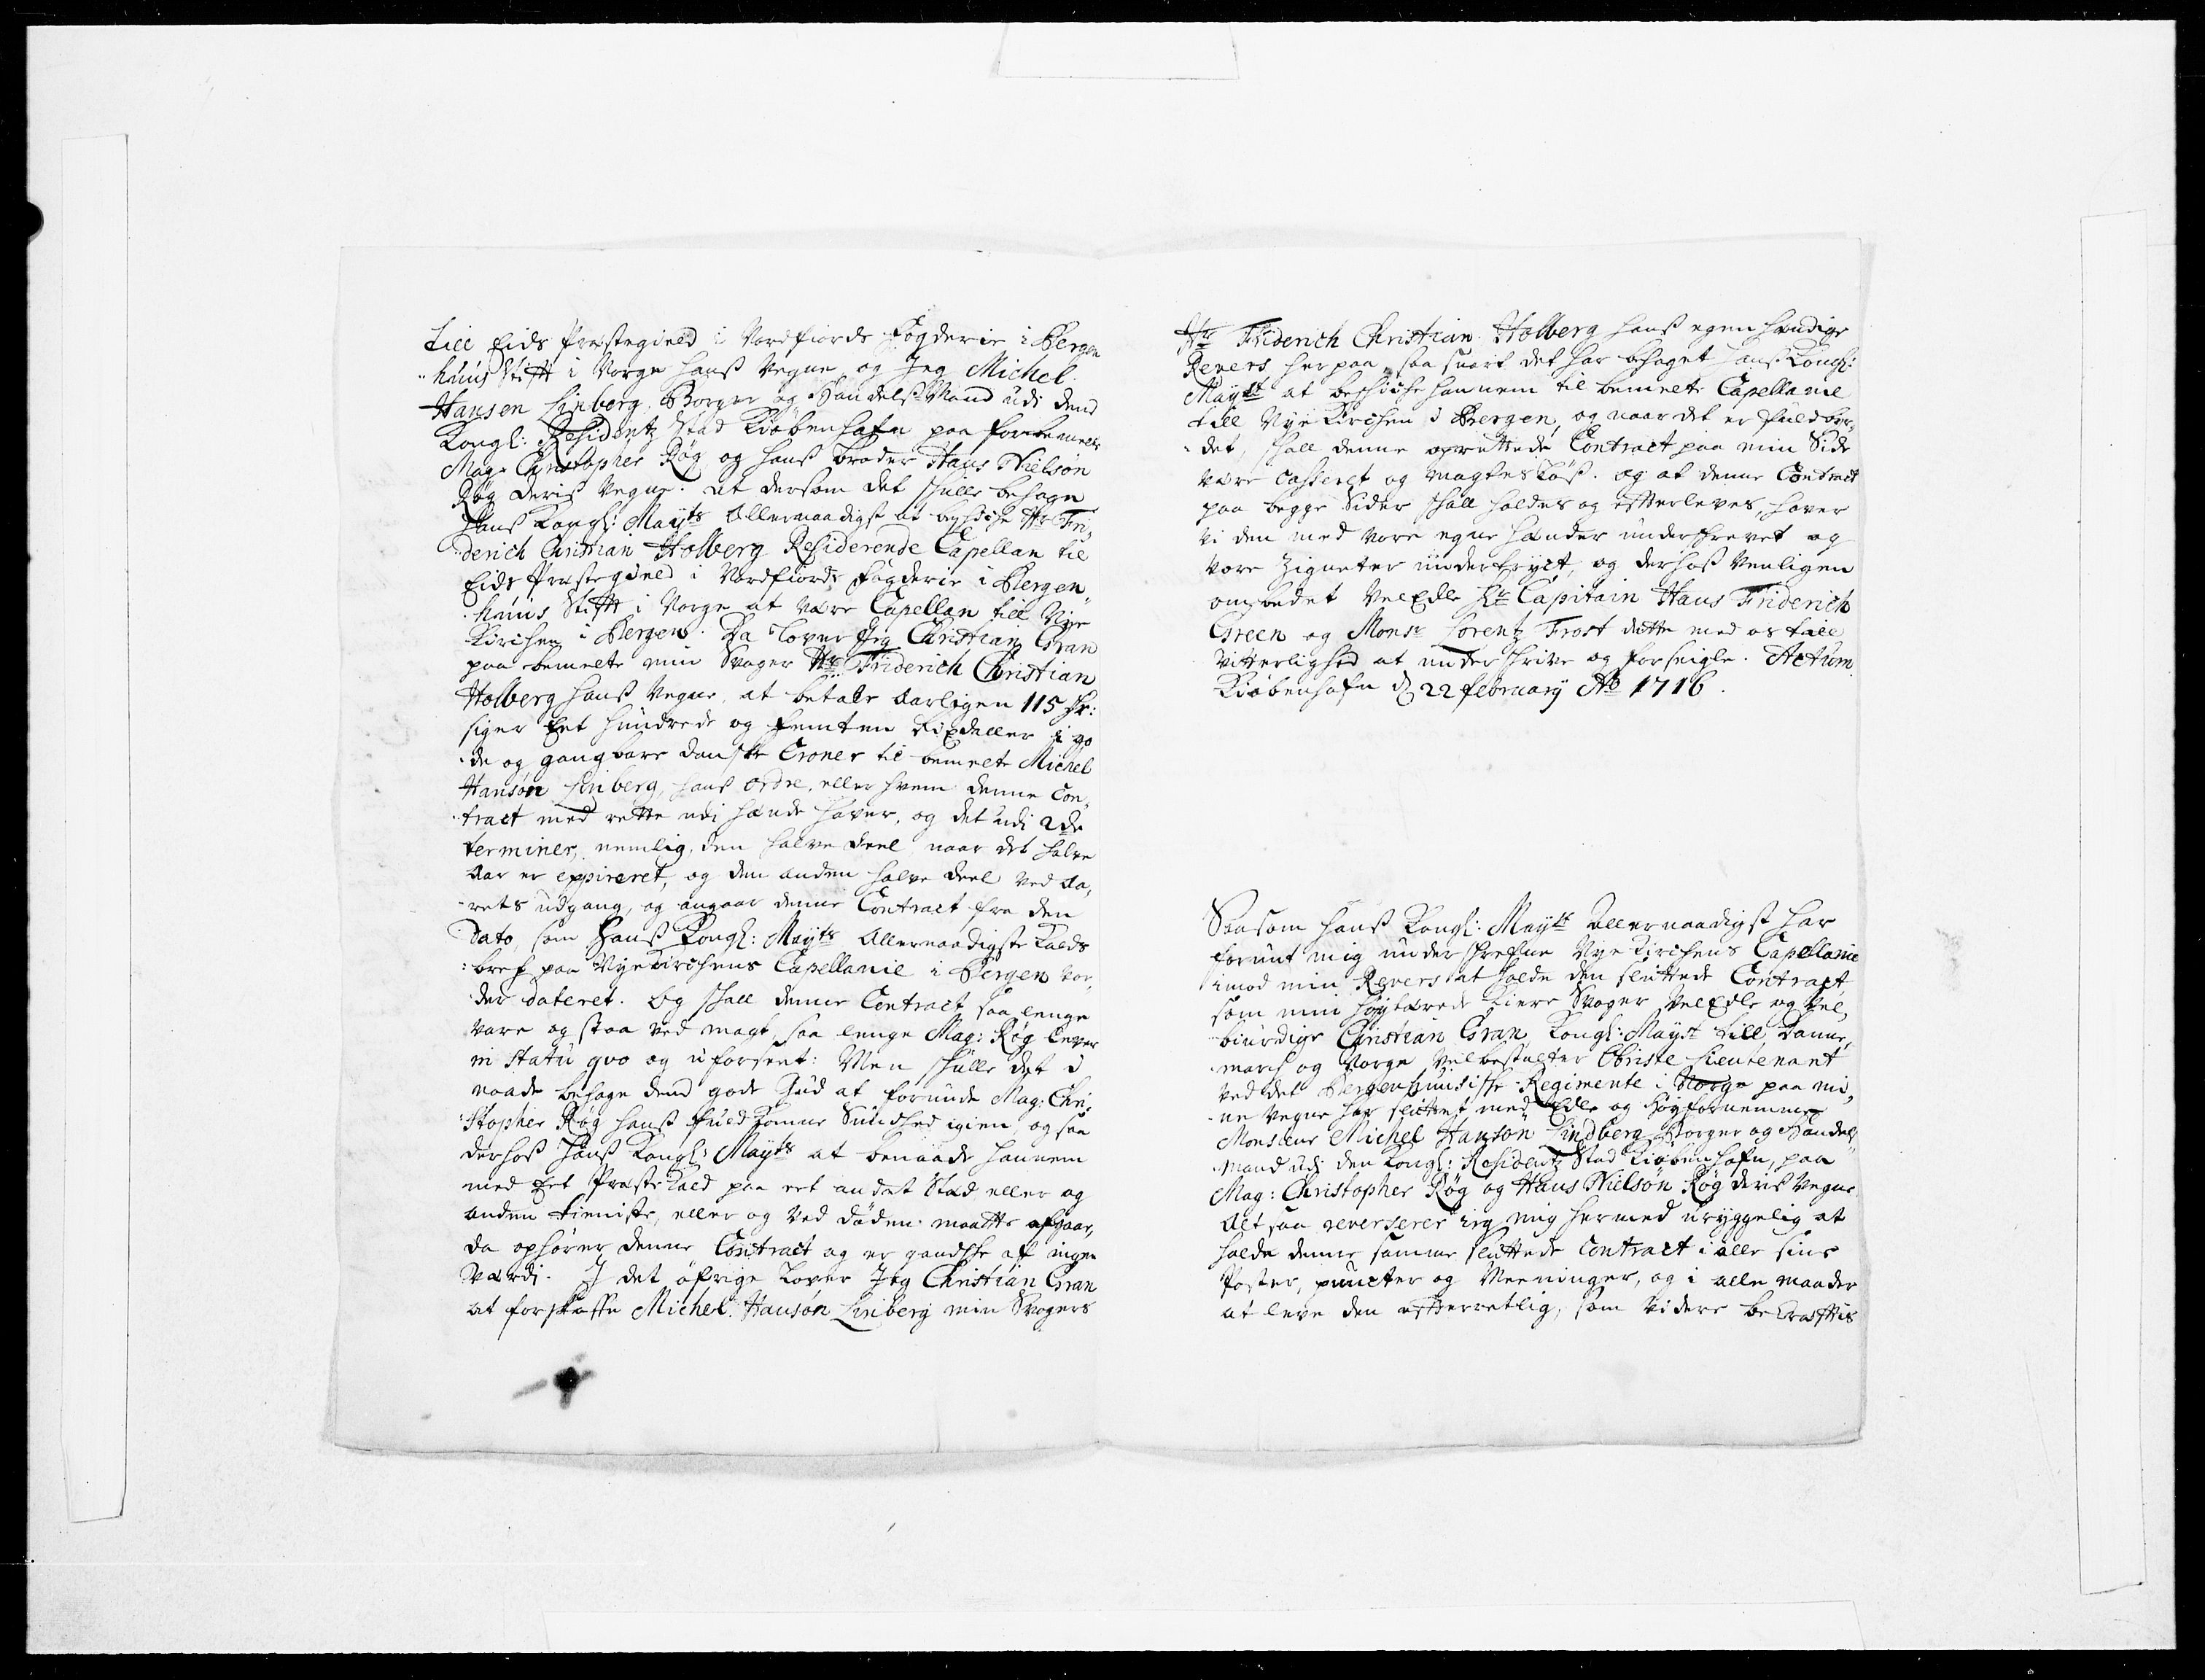 till Eids Præstegield i Nordfiords Fogderie i Bergen
huus Stifft i Norge hanß Vegne, og Jeg Michel
Hansen Linberg Borger og Handelß Mand udi dend
Kongl: Residentz Stad Kiöbenhafn paa forbemelte
Mag: Christopher Røg og hanß broder Hans Nielsøn
Røg deriß Vegne: at dersom det skulle behage
Hanß Kongl: Mayts Allernaadigst at beskicke Hr Fri,,
derich Christian Holberg Residerende Capellan til
Eids Præstegield i Nordfiords Fogderie i Bergen,,
huus Stifft i Norge at være Capellan till Nye
Kirchen i Bergen. Da lover Jeg Christian Gran
paa bemelte min Svoger Hr Friderich Christian
Holberg hanß Vegne, at betale Aarligen 115 Rdr:
siger Eet hundrede og femten Rixdaller i go
de og gangbare danske Croner til bemelte Michel
Hansøn Linberg, hans ordre, eller hvem denne Con,,
tract med rette udi hænde haver, og det udi 2de
terminer, nemlig, den halve deel naar det halve
Aar er expireret, og den anden halve deel ved Aa,,
rets udgang, og angaar denne Contract fra den
Dato, som Hanß Kongl: Mayts Allernaadigste Kalds
bref paa Nyekirchens Capellanie i Bergen vor,,
der dateret. Og skall denne Contract saa lenge
vare og staa ved magt, saa lenge Mag: Røg lever
in statu qvo og uforseet: Men skulle det i
naade behage dend gode Gud at forunde Mag: Chri,,
stopher Røg hanß fuldkomne Sundhed igien, og saa
derhoß Hanß Kongl: Mayts at benaade hannem
med Eet Præstekald paa eet andet Stæd eller og
anden tieniste, eller og ved döden maatte afgaar,
da ophører denne Contract og er gandske af ingen
Værdi. I det öfrige lover Jeg Christian Gran
at forskaffe Michel Hansøn Linberg min Svogers
Hr Friderich Christian Holberg hanß egen hændige
Revers her paa, saa snart det har behaget Hanß Kongl:
Mayts at beskicke hannem til bemelte Capellanie
till Nye Kirchen i Bergen, og naar det er fuldbyr,,
det, skall denne oprettede Contract paa min Side
være Casseret og magtesløß. og at denne Contract
paa begge Sider skall holdes og efterleves, haver
vi den med vore egne hænder underskrevet og
vore Zigneter undertryct, og derhoß Venligen
ombedet VelEdle Hr Capitain Hans Friderich
Green og Monsr Lorentz Frost dette med os till
Vitterlighed at underskrive og forseigle. Actum
Kiöbenhafn d 22 february Ao 1716.
Saasom Hanß Kongl: Mayts Allernaadigst har
forunt mig underskrefne Nye Kirchens Capellanie
imod min Revers at holde den sluttede Contract,
som min høytærede Kiere Svoger VelEdle og Vel,,
biurdige Christian Gran, Kongl: Mayts till Danne,,
march og Norge Velbestalter Obriste Lieutenant
ved det Bergenhuusiske Regimente i Norge paa mi,,
ne Vegne har sluttet med Edle og Høyfornemme
Monsieur Michel Hansøn Lindberg Borger og Handels,,
Mand udi den Kongl: Residentz Stad Kiøbenhafn, paa
Mag: Christopher Røg og Hans Nielsøn Røg deris Vegne
Alt saa reverserer ieg mig hermed uryggelig at
holde denne samme sluttede Contract i alle sine
Poster, puncter og Meeninger, og i alle maader
at leve den efterretlig, som videre bekrafftis